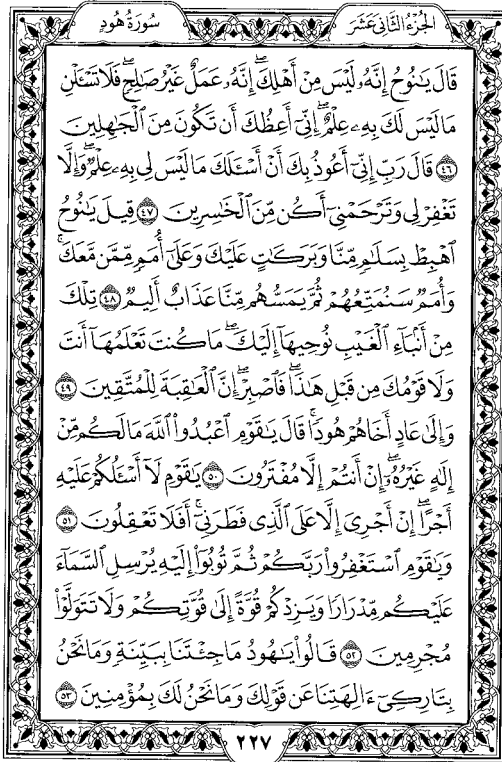 الجُزْءُ الثَّانِي عَشَرَ
سُورَةُ هُودٍ
قَالَ يَٰنُوحُ إِنَّهُۥ لَيْسَ مِنْ أَهْلِكَۖ إِنَّهُۥ عَمَلٌ غَيْرُ صَٰلِحٖۖ فَلَا تَسْـَٔلْنِ
مَا لَيْسَ لَكَ بِهِۦ عِلْمٌۖ إِنِّيٓ أَعِظُكَ أَن تَكُونَ مِنَ ٱلْجَٰهِلِينَ
٤٦ قَالَ رَبِّ إِنِّيٓ أَعُوذُ بِكَ أَنْ أَسْـَٔلَكَ مَا لَيْسَ لِي بِهِۦ عِلْمٌۖ وَإِلَّا
تَغْفِرْ لِي وَتَرْحَمْنِيٓ أَكُن مِّنَ ٱلْخَٰسِرِينَ ٤٧ قِيلَ يَٰنُوحُ
ٱهْبِطْ بِسَلَٰمٖ مِّنَّا وَبَرَكَٰتٍ عَلَيْكَ وَعَلَىٰٓ أُمَمٖ مِّمَّن مَّعَكَۚ
وَأُمَمٞ سَنُمَتِّعُهُمْ ثُمَّ يَمَسُّهُم مِّنَّا عَذَابٌ أَلِيمٞ ٤٨ تِلْكَ
مِنْ أَنۢبَآءِ ٱلْغَيْبِ نُوحِيهَآ إِلَيْكَۖ مَا كُنتَ تَعْلَمُهَآ أَنتَ
وَلَا قَوْمُكَ مِن قَبْلِ هَٰذَاۖ فَٱصْبِرْۖ إِنَّ ٱلْعَٰقِبَةَ لِلْمُتَّقِينَ ٤٩
وَإِلَىٰ عَادٍ أَخَاهُمْ هُودٗاۚ قَالَ يَٰقَوْمِ ٱعْبُدُوا۟ ٱللَّهَ مَا لَكُم مِّنْ
إِلَٰهٍ غَيْرُهُۥٓۖ إِنْ أَنتُمْ إِلَّا مُفْتَرُونَ ٥٠ يَٰقَوْمِ لَآ أَسْـَٔلُكُمْ عَلَيْهِ
أَجْرًاۖ إِنْ أَجْرِيَ إِلَّا عَلَى ٱلَّذِي فَطَرَنِيٓۚ أَفَلَا تَعْقِلُونَ ٥١
وَيَٰقَوْمِ ٱسْتَغْفِرُوا۟ رَبَّكُمْ ثُمَّ تُوبُوٓا۟ إِلَيْهِ يُرْسِلِ ٱلسَّمَآءَ
عَلَيْكُم مِّدْرَارٗا وَيَزِدْكُمْ قُوَّةً إِلَىٰ قُوَّتِكُمْ وَلَا تَتَوَلَّوْا۟
مُجْرِمِينَ ٥٢ قَالُوا۟ يَٰهُودُ مَا جِئْتَنَا بِبَيِّنَةٖ وَمَا نَحْنُ
بِتَارِكِيٓ ءَالِهَتِنَا عَن قَوْلِكَ وَمَا نَحْنُ لَكَ بِمُؤْمِنِينَ ٥٣
٢٢٧